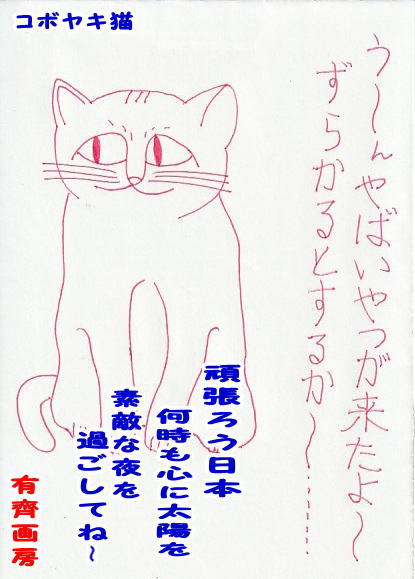 コボヤキ猫
う～んやばいやつが来たよ～
ずらかるとするか～……
頑張ろう日本
何時も心に太陽を
素敵な夜を
過ごしてね～
有齊画房